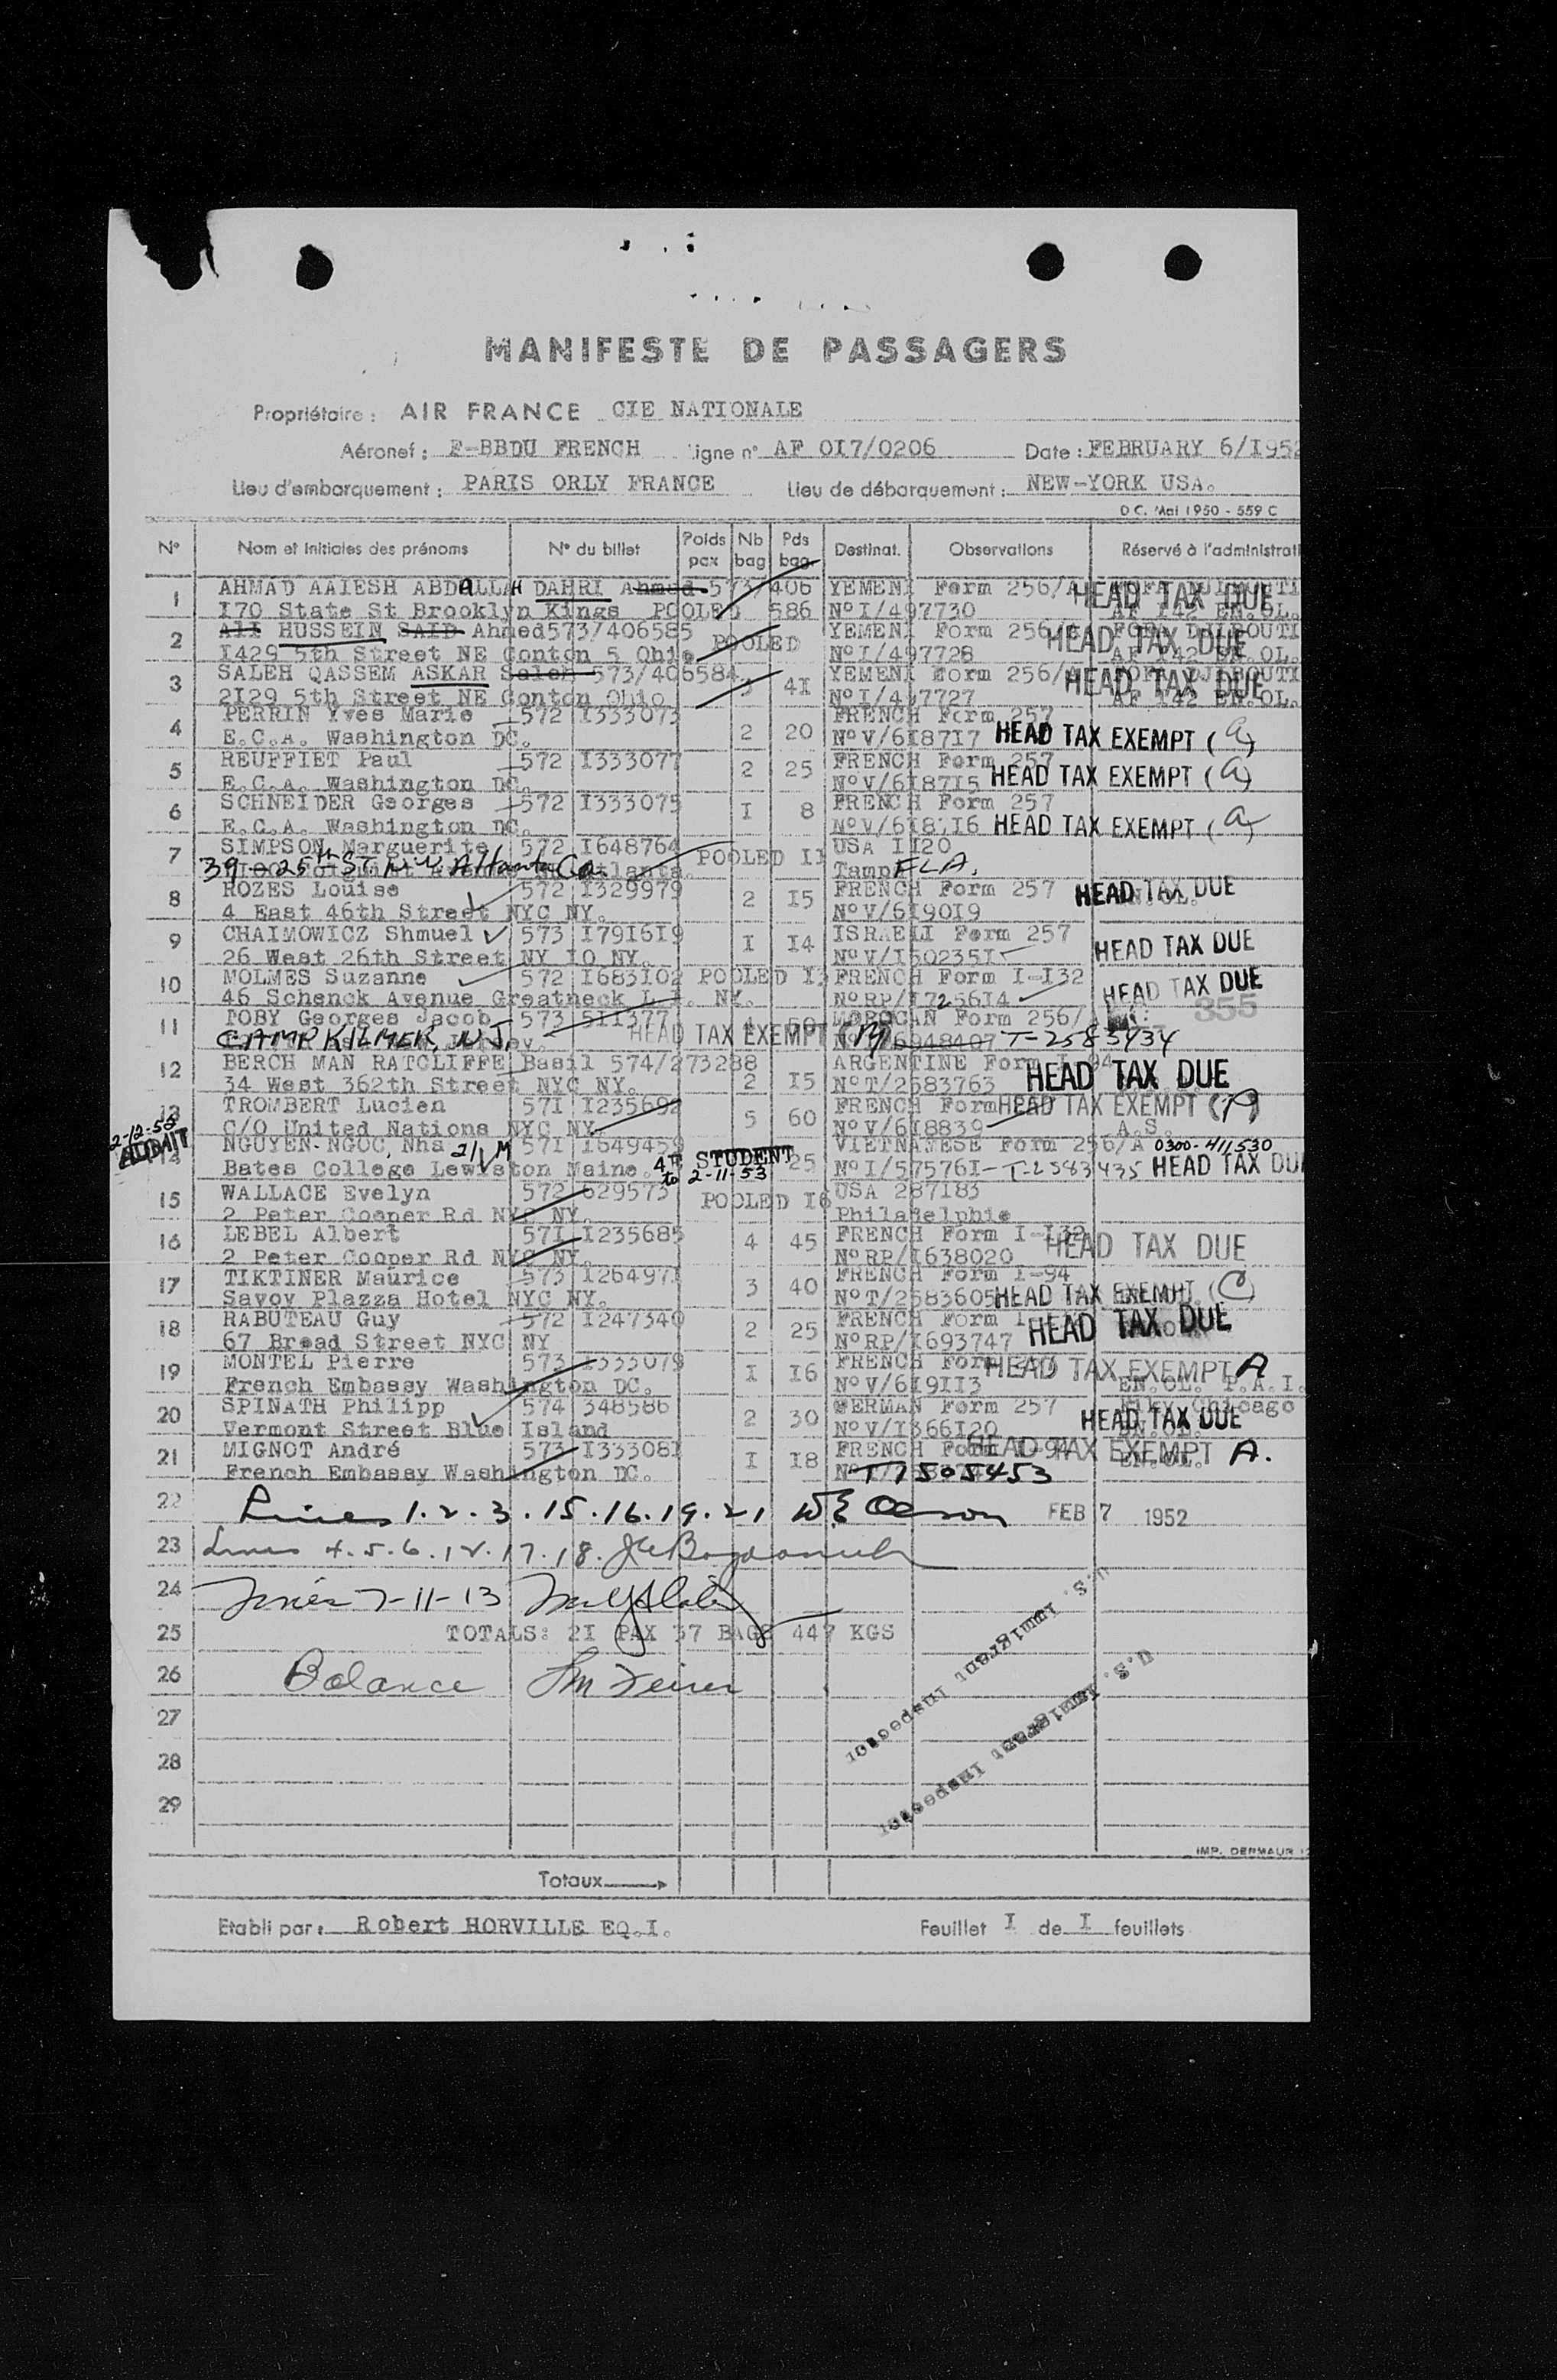 MANIFESTE DE PASSAGERS
Propriétaire : AIR FRANCE CIE NATIONALE
Aéronef : F-BBDU FRENCH Ligne n° AF OI7/0206 Date : FEBRUARY 6/I952
Lieu d'embarquement : PARIS ORLY FRANCE Lieu de débarquement : NEW-YORK USA.
D.C. Mai 1950 - 559 C
N° Nom et initiales des prénoms N° du billet Poids pax Nb bag Pds bag. Destinat. Observations Réservé à l'administrati
1 AHMAD AAIESH ABDaLLAH DAHRI Ahmed 573/406 YEMENI Form 256/A HEAD TAX DUE
I70 State St Brooklyn Kings POOLED 586 N°I/497730 AF I42 EN.OL.
2 Ali HUSSEIN SAID Ahmed573/406585 POOLED YEMENI Form 256/A HEAD TAX DUE
I429 5th Street NE Conton 5 Ohio N°I/497728 AF I42 EN.OL.
3 SALEH QASSEM ASKAR Saleh 573/406584 3 4I YEMENI Form 256/A HEAD TAX DUE
2I29 5th Street NE Conton Ohio N°I/497727 AF I42 EN.OL.
4 PERRIN Yves Marie 572 I333073 2 20 FRENCH Form 257
E.C.A. Washington DC. N°V/6I87I7 HEAD TAX EXEMPT (a)
5 REUFFIET Paul 572 I333077 2 25 FRENCH Form 257
E.C.A. Washington DC. N°V/6I87I5 HEAD TAX EXEMPT (a)
6 SCHNEIDER Georges 572 I333075 I 8 FRENCH Form 257
E.C.A. Washington DC. N°V/6I87I6 HEAD TAX EXEMPT (a)
7 SIMPSON Marguerite 572 I648764 POOLED II USA II20
39 25th ST. N.W. Atlanta Ga. Tamp FLA.
8 ROZES Louise 572 I329979 2 I5 FRENCH Form 257 HEAD TAX DUE
4 East 46th Street NYC NY. N°V/6I90I9
9 CHAIMOWICZ Shmuel 573 I79I6I9 I I4 ISRAELI Form 257 HEAD TAX DUE
26 West 26th Street NY IO NY. N°V/I50235I
10 MOLMES Suzanne 572 I683I02 POOLED I3 FRENCH Form I-I32 HEAD TAX DUE
46 Schenck Avenue Greatneck L.I. NY. N°RP/I7256I4 355
11 TOBY Georges Jacob 573 5II377 4 50 MOROCAN Form 256/
CAMP KILMER, N.J. HEAD TAX EXEMPT T-2583434
12 BERCH MAN RATCLIFFE Basil 574/273288 2 I5 ARGENTINE Form I-94
34 West 362th Street NYC NY. N°T/2583763 HEAD TAX DUE
13 TROMBERT Lucien 57I I235692 5 60 FRENCH Form HEAD TAX EXEMPT
C/O United Nations NYC NY. N°V/6I8839 A.S.
ADMIT
14 NGUYEN-NGOC, Nha 21 M 57I I649459 25 VIETNAMESE Form 256/A 0300-411530
Bates College Lewiston Maine. 4TE STUDENT to 2-11-53 N°I/57576I- T-2583435 HEAD TAX DU
15 WALLACE Evelyn 572 629573 POOLED I6 USA 287I83
2 Peter Cooper Rd NYC NY. Philadelphie
16 LEBEL Albert 57I I235685 4 45 FRENCH Form I-I32 HEAD TAX DUE
2 Peter Cooper Rd NYC NY. N°RP/I638020
17 TIKTINER Maurice 573 I26497I 3 40 FRENCH Form I-94
Savoy Plazza Hotel NYC NY. N°T/2583605 HEAD TAX EXEMPT (C)
18 RABUTEAU Guy 572 I247340 2 25 FRENCH Form HEAD TAX DUE
67 Broad Street NYC NY N°RP/I693747
19 MONTEL Pierre 573 I333079 I I6 FRENCH Form HEAD TAX EXEMPT A
French Embassy Washington DC. N°V/6I9II3 EN.OL. P.A.I.
20 SPINATH Philipp 574 348586 2 30 GERMAN Form 257 Chicago
Vermont Street Blue Island N°V/I366I20 HEAD TAX DUE
21 MIGNOT André 573 I33308I I I8 FRENCH Form I-94 HEAD TAX EXEMPT A.
French Embassy Washington DC. T1505453
22 Lines 1.2.3.15.16.19.21 FEB 7 1952
23 Lines 4.5.6.12.17.18.
24 Lines 7-11-13
25 TOTALS: 2I PAX 37 BAGS 447 KGS
26 Balance
U.S. Immigrant Inspector
27
U.S. Immigrant Inspector
28
29
IMP. DERMAUR
Totaux
Etabli par : Robert HORVILLE EQ.I. Feuillet I de I feuillets